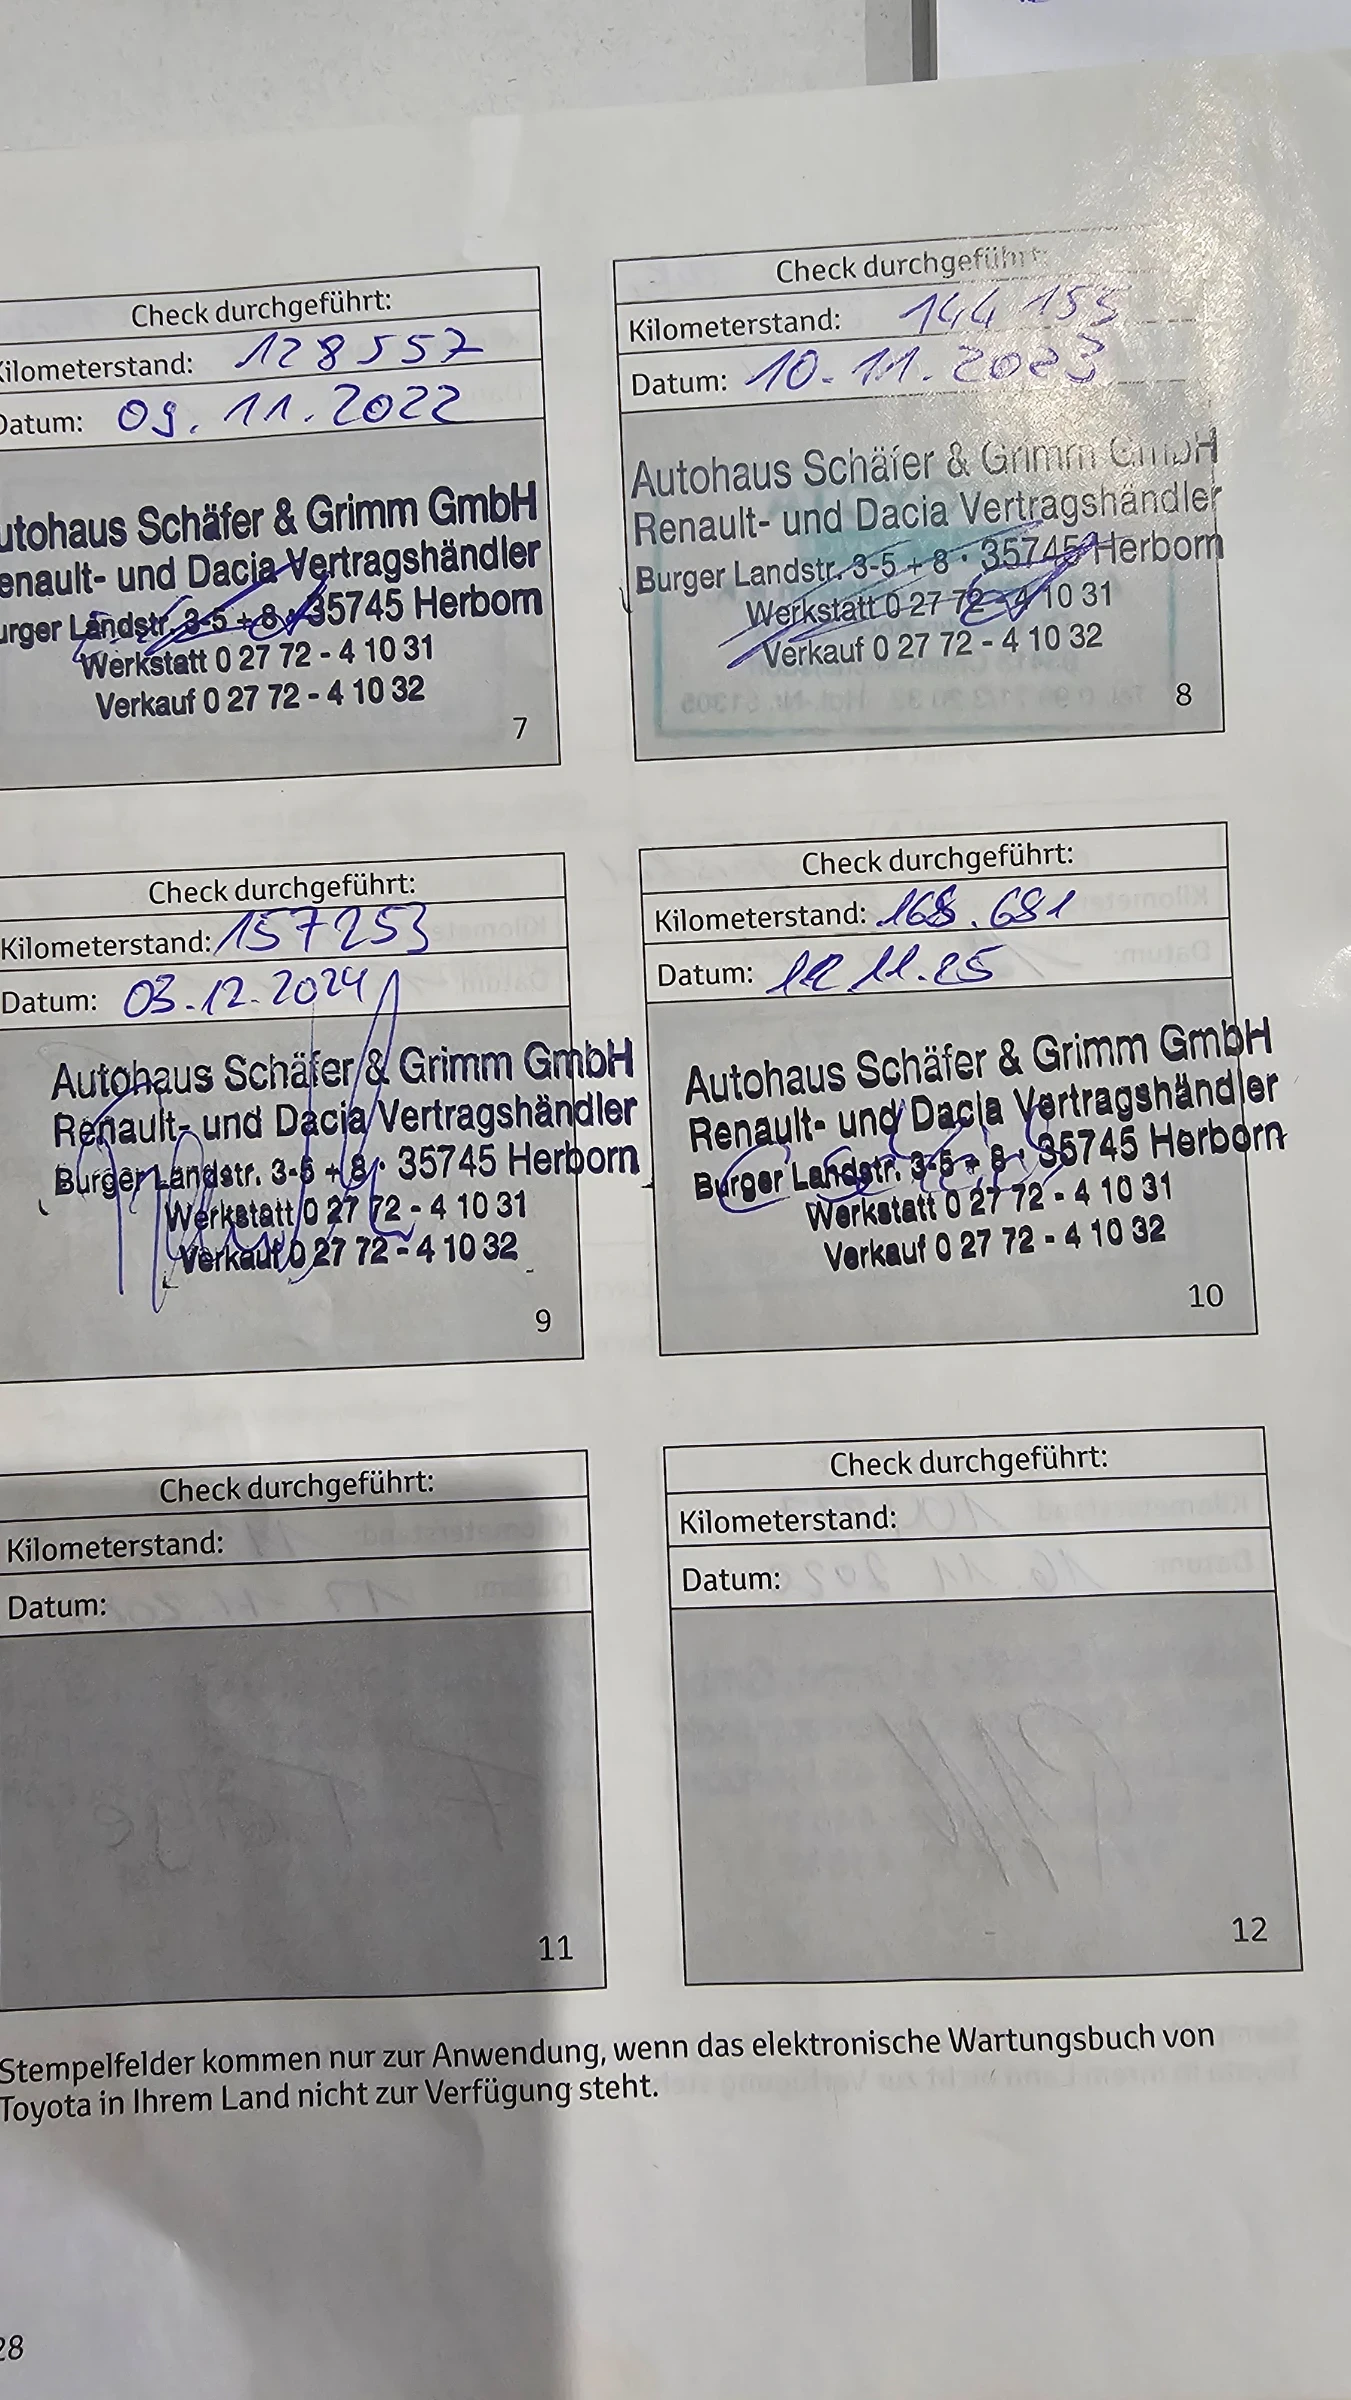 Check durchgeführt:
Kilometerstand: 128 557
Datum: 09. 11. 2022
utohaus Schäfer & Grimm GmbH
enault- und Dacia Vertragshändler
urger Landstr. 3-5 + 8 · 35745 Herborn
Werkstatt 0 27 72 - 4 10 31
Verkauf 0 27 72 - 4 10 32
7
Check durchgeführt:
Kilometerstand: 144 155
Datum: 10. 11. 2023
Autohaus Schäfer & Grimm GmbH
Renault- und Dacia Vertragshändler
Burger Landstr. 3-5 + 8 · 35745 Herborn
Werkstatt 0 27 72 - 4 10 31
Verkauf 0 27 72 - 4 10 32
8
Check durchgeführt:
Kilometerstand: 157253
Datum: 03.12.2024
Autohaus Schäfer & Grimm GmbH
Renault- und Dacia Vertragshändler
Burger Landstr. 3-5 + 8 · 35745 Herborn
Werkstatt 0 27 72 - 4 10 31
Verkauf 0 27 72 - 4 10 32
9
Check durchgeführt:
Kilometerstand: 168.681
Datum: 12.11.25
Autohaus Schäfer & Grimm GmbH
Renault- und Dacia Vertragshändler
Burger Landstr. 3-5 + 8 · 35745 Herborn
Werkstatt 0 27 72 - 4 10 31
Verkauf 0 27 72 - 4 10 32
10
Check durchgeführt:
Kilometerstand:
Datum:
11
Check durchgeführt:
Kilometerstand:
Datum:
12
Stempelfelder kommen nur zur Anwendung, wenn das elektronische Wartungsbuch von
Toyota in Ihrem Land nicht zur Verfügung steht.
28